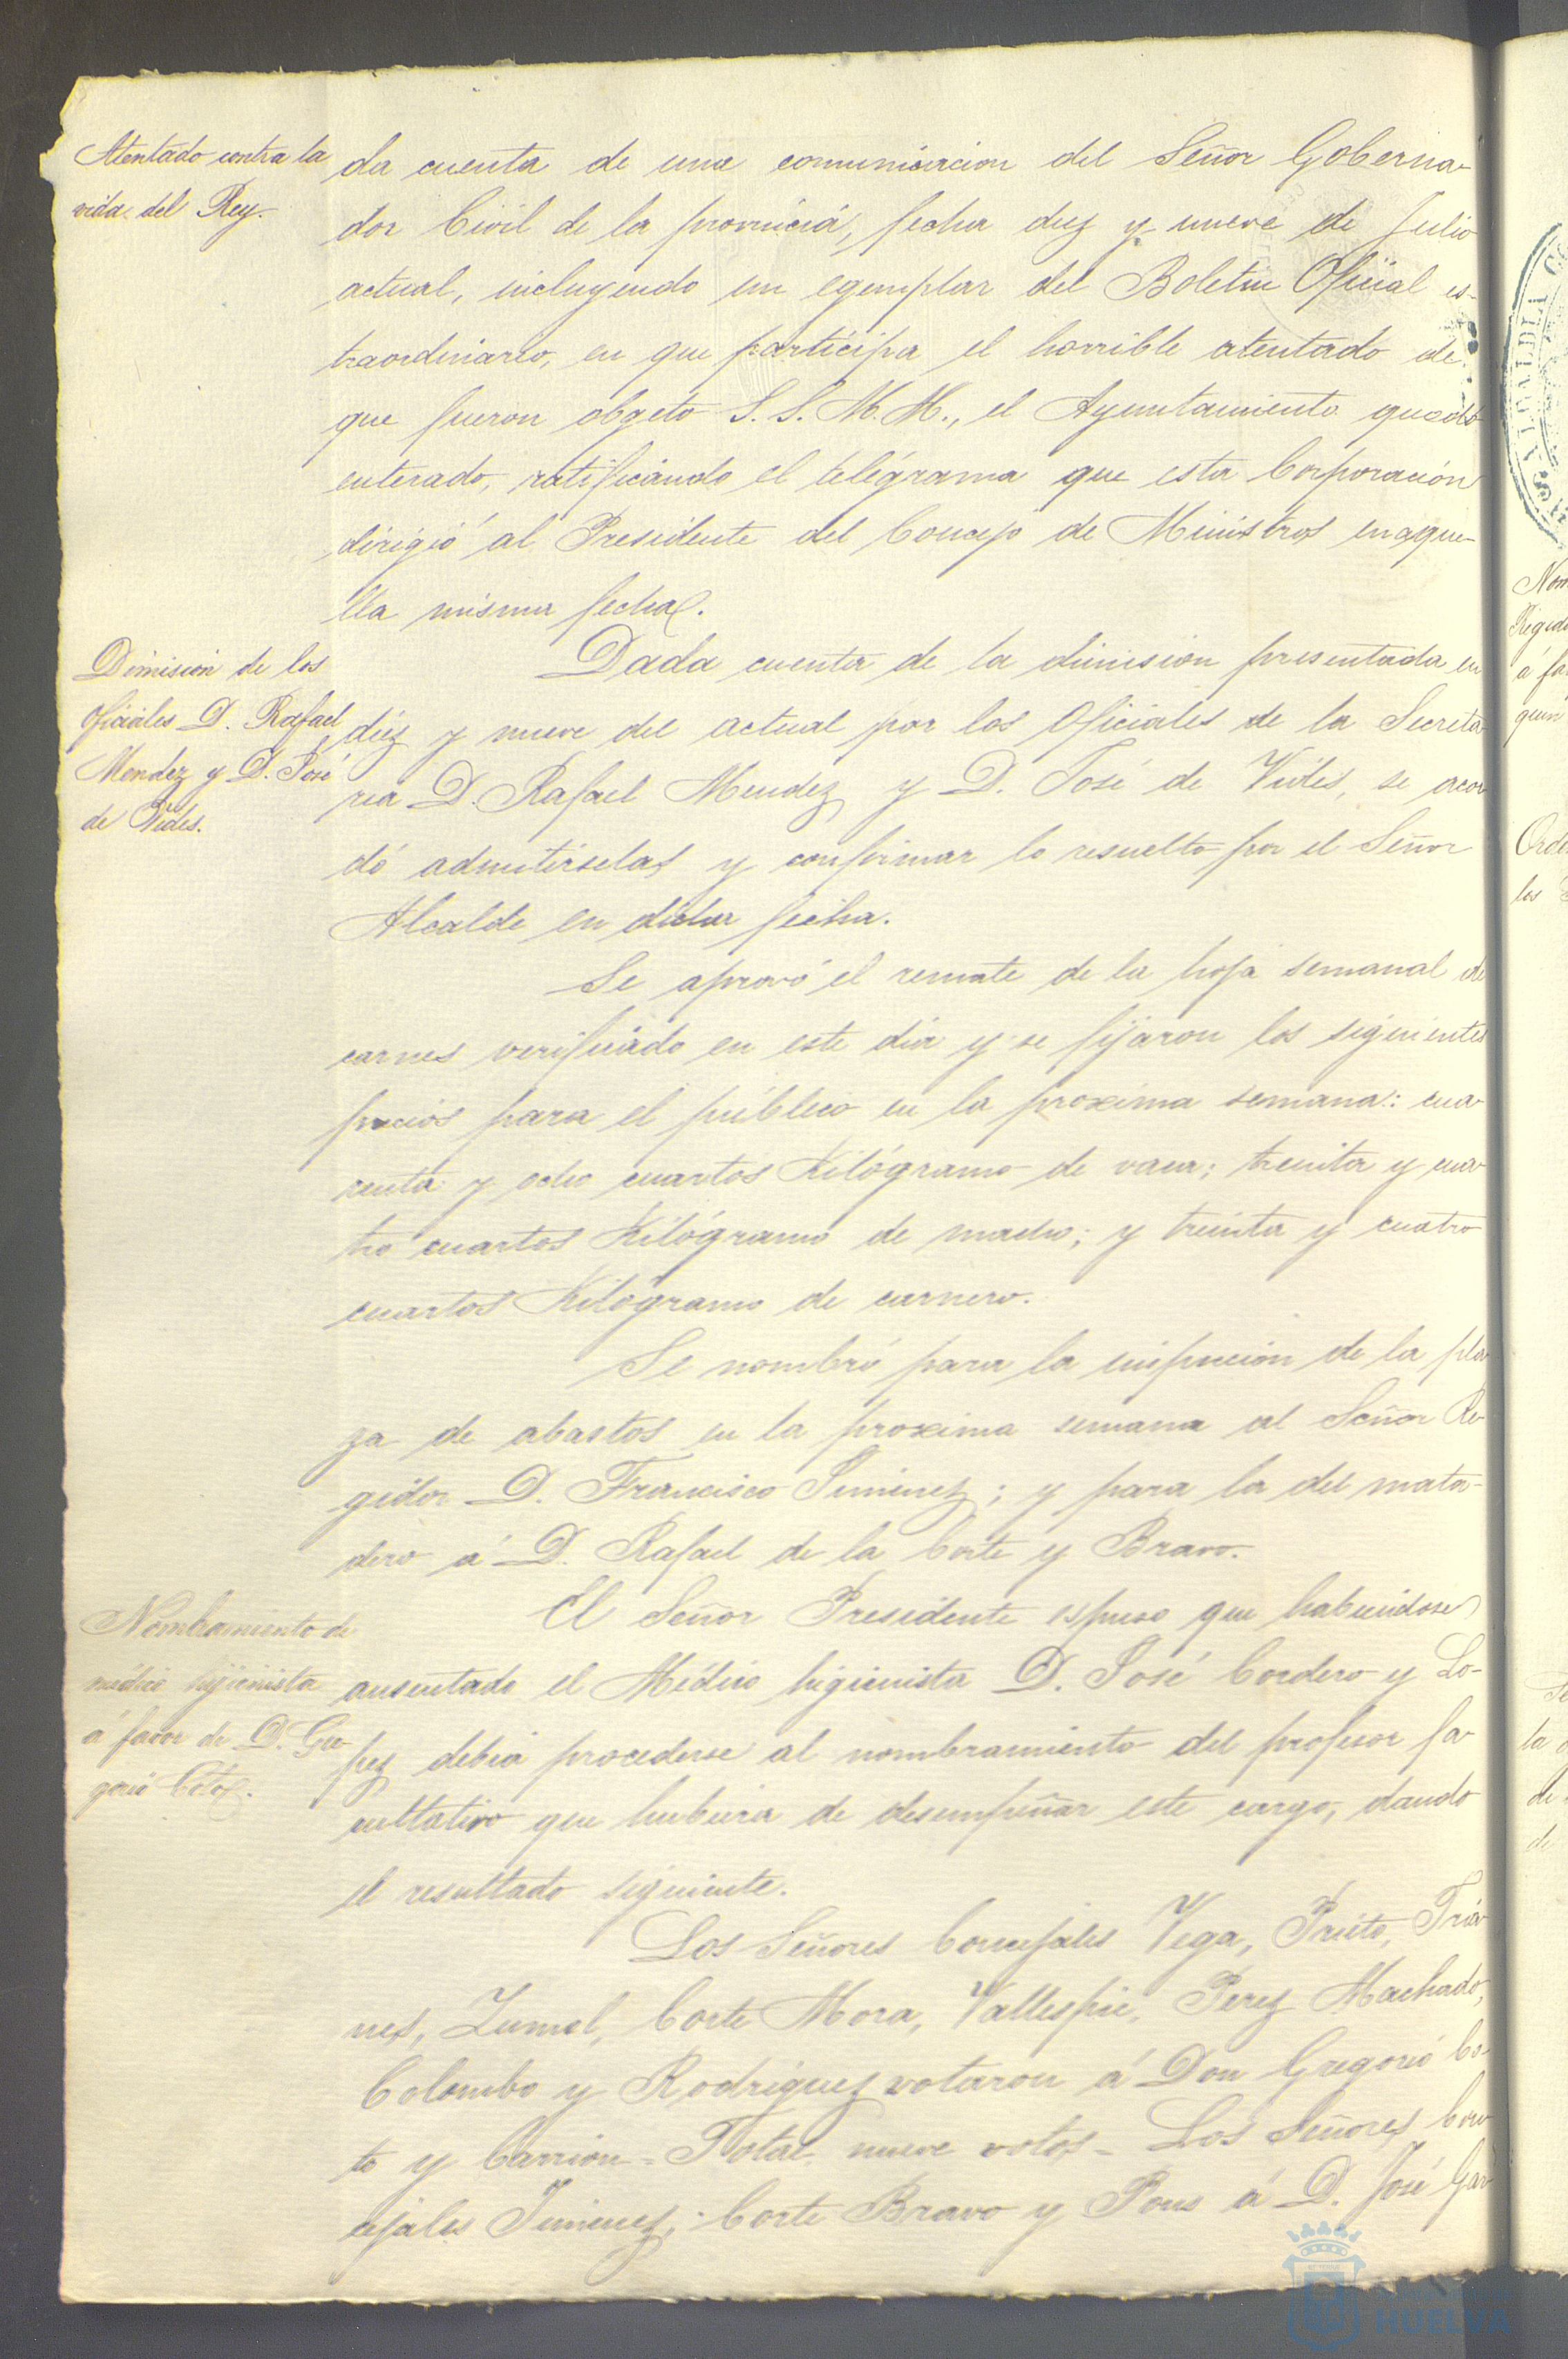 Atentado contra la
vida del Rey.
da cuenta de una comunicacion del Señor Goberna-
dor Civil de la provincia, fecha diez y nueve de Julio
actual, incluyendo un egemplar del Boletin Oficial es-
traordinario, en que participa el horrible atentado de
que fueron obgeto S.S. M.M., el Ayuntamiento quedó
enterado, ratificando el telégrama que esta Corporación
dirigió al Presidente del Concejo de Ministros en aque-
lla misma fecha.
Dimisión de los
Oficiales D. Rafael
Mendez y D. José
de Vides.
Dada cuenta de la dimision presentada en
diez y nueve del actual por los Oficiales de la Secreta
ria D. Rafael Mendez y D. José de Vides, se acor
dó admitirselas y confirmar lo resuelto por el Señor
Alcalde en dicha fecha.
Se aprovó el remate de la hoja semanal de
carnes verificado en este dia y se fijaron los siguientes
precios para el público en la proxima semana: cua-
renta y ocho cuartos Kilógramo de vaca; treinta y cua-
tro cuartos Kilógramo de macho; y treinta y cuatro
cuartos Kilógramo de carnero.
Se nombró para la inspeccion de la pla
za de abastos en la proxima semana al Señor Re-
gidor D. Francisco Jimenez; y para la del mata-
dero á D. Rafael de la Corte y Bravo.
Nombramiento de
médico higienista
á favor de D. Gre-
gorio Coto.
El Señor Presidente espuso que habiendose
ausentado el Médico higienista D. José Cordero y Lo-
pez debia procederse al nombramiento del profesor fa-
cultativo que hubiera de desempeñar este cargo, dando
el resultado siguiente.
Los Señores Concejales Vega, Prieto, Tria-
nes, Zumel, Corte Mora, Vallespie, Perez Machado,
Colombo y Rodriguez votaron á Don Gregorio Co-
to y Carrion = Total nueve votos = Los Señores Con
cejales Jimenez, Corte Bravo y Pons á D. José Gar
HUELVA